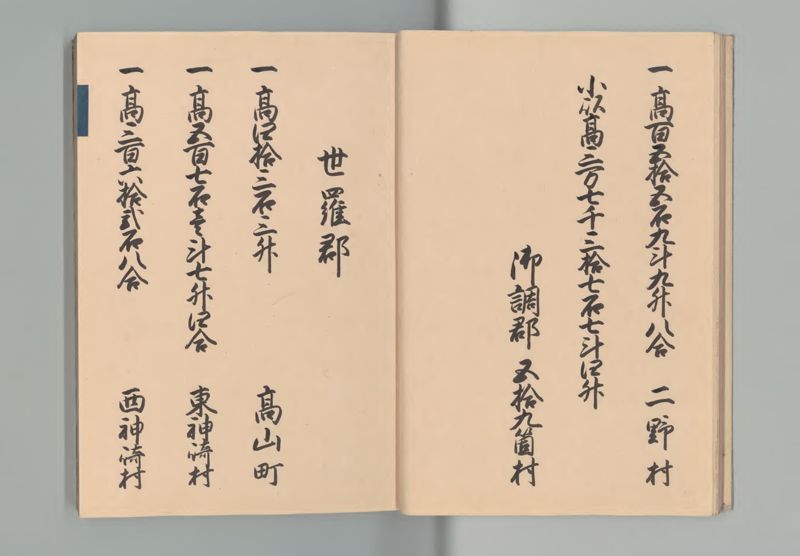 一 高百五拾五石九斗九升八合 二野村
小以高三万七千三拾七石七斗四升
御調郡 五拾九箇村
世羅郡
一 高四拾三石三升 高山町
一 高五百七石壱斗七升四合 東神崎村
一 高三百六拾弐石八合 西神崎村